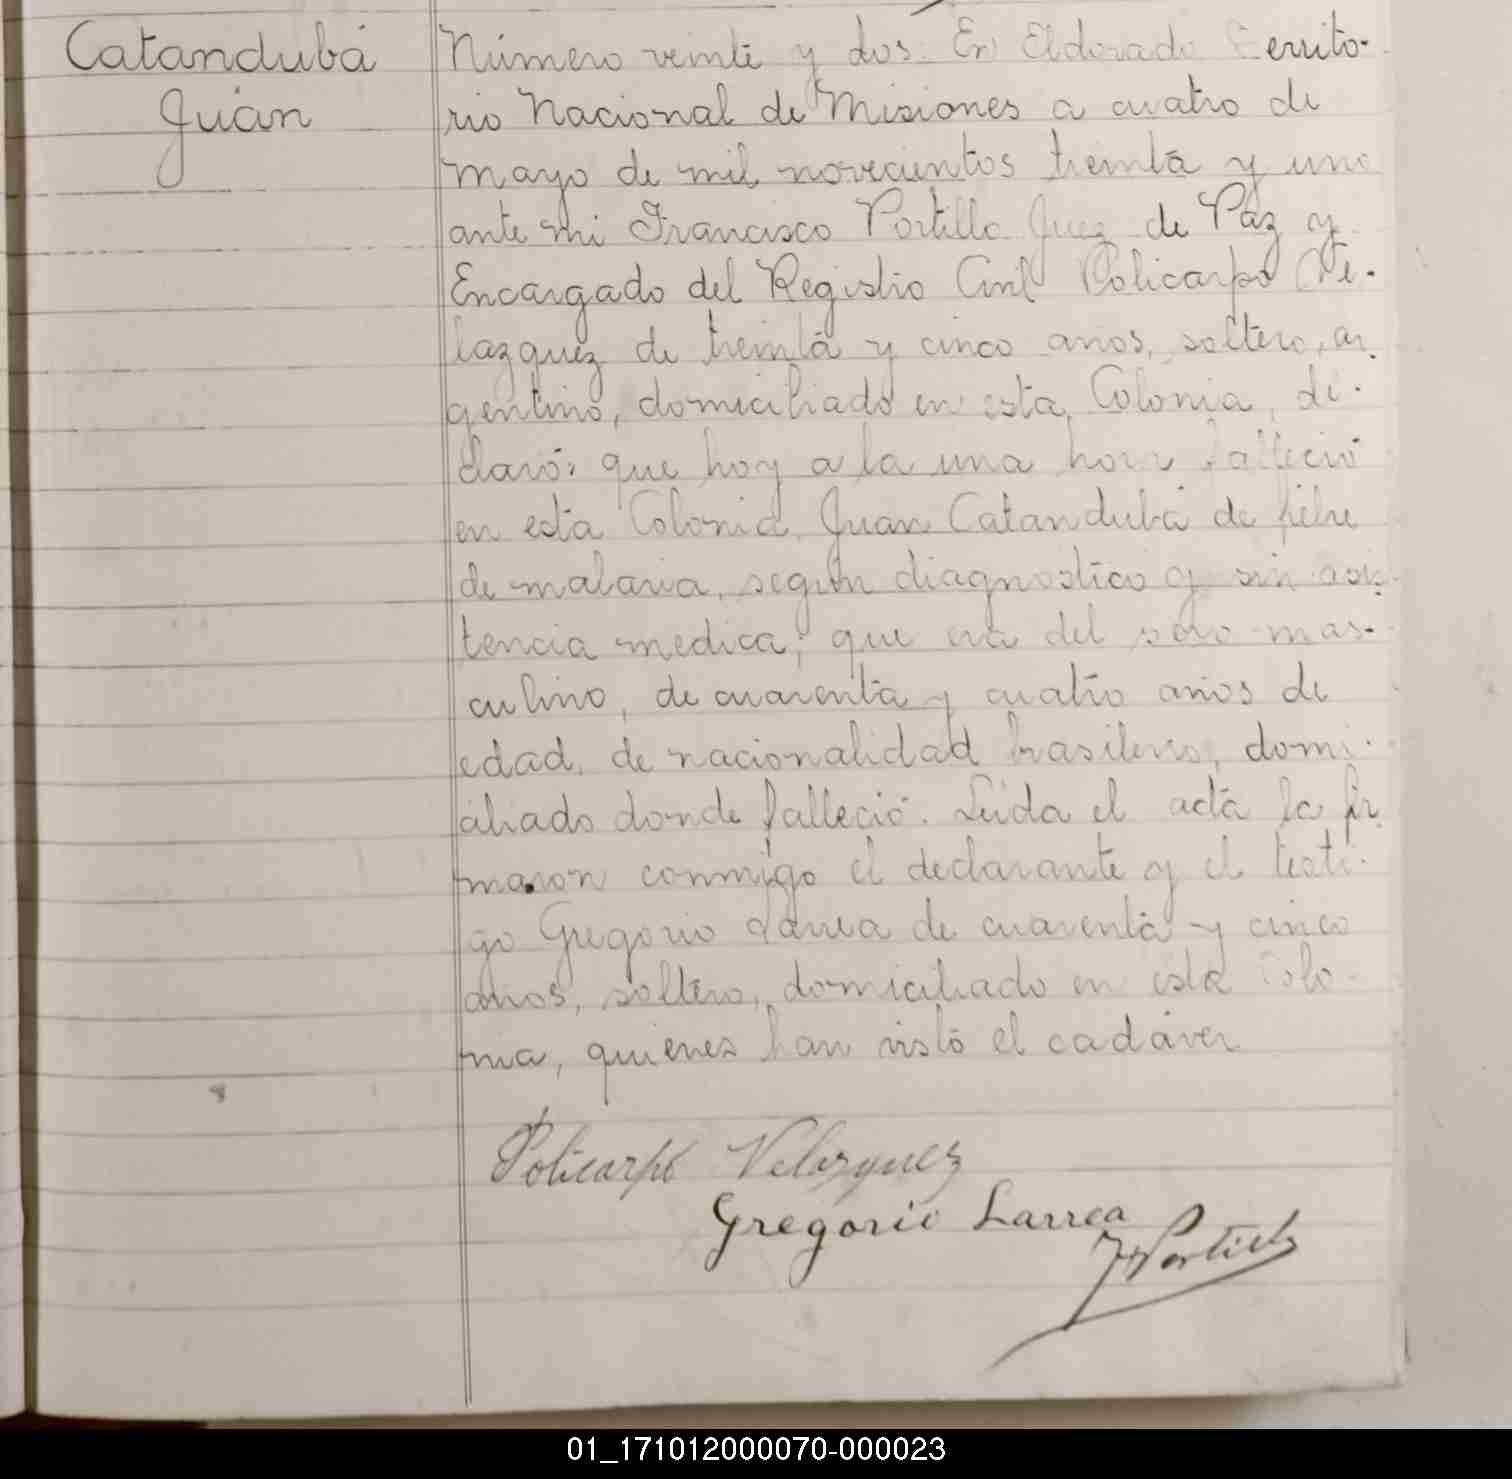 Catandubá
Juan
Número veinte y dos. En Eldorado Territo-
rio Nacional de Misiones a cuatro de
mayo de mil novecientos treinta y uno
ante mi Francisco Portillo Juez de Paz y
Encargado del Registro Civil Policarpo Ve-
lazquez de treinta y cinco años, soltero, ar-
gentino, domiciliado en esta Colonia, de-
claró: que hoy a la una hora falleció
en esta Colonia Juan Catandubá de fiebre
de malaria, según diagnostico y sin asis-
tencia medica; que era del sexo mas-
culino, de cuarenta y cuatro años de
edad, de nacionalidad brasilero, domi-
ciliado donde falleció. Leida el acta la fir-
maron conmigo el declarante y el testi-
go Gregorio Larrea de cuarenta y cinco
años, soltero, domiciliado en esta Colo-
nia, quienes han visto el cadáver
Policarpo Velazquez
Gregorio Larrea
F Portillo
01_171012000070-000023